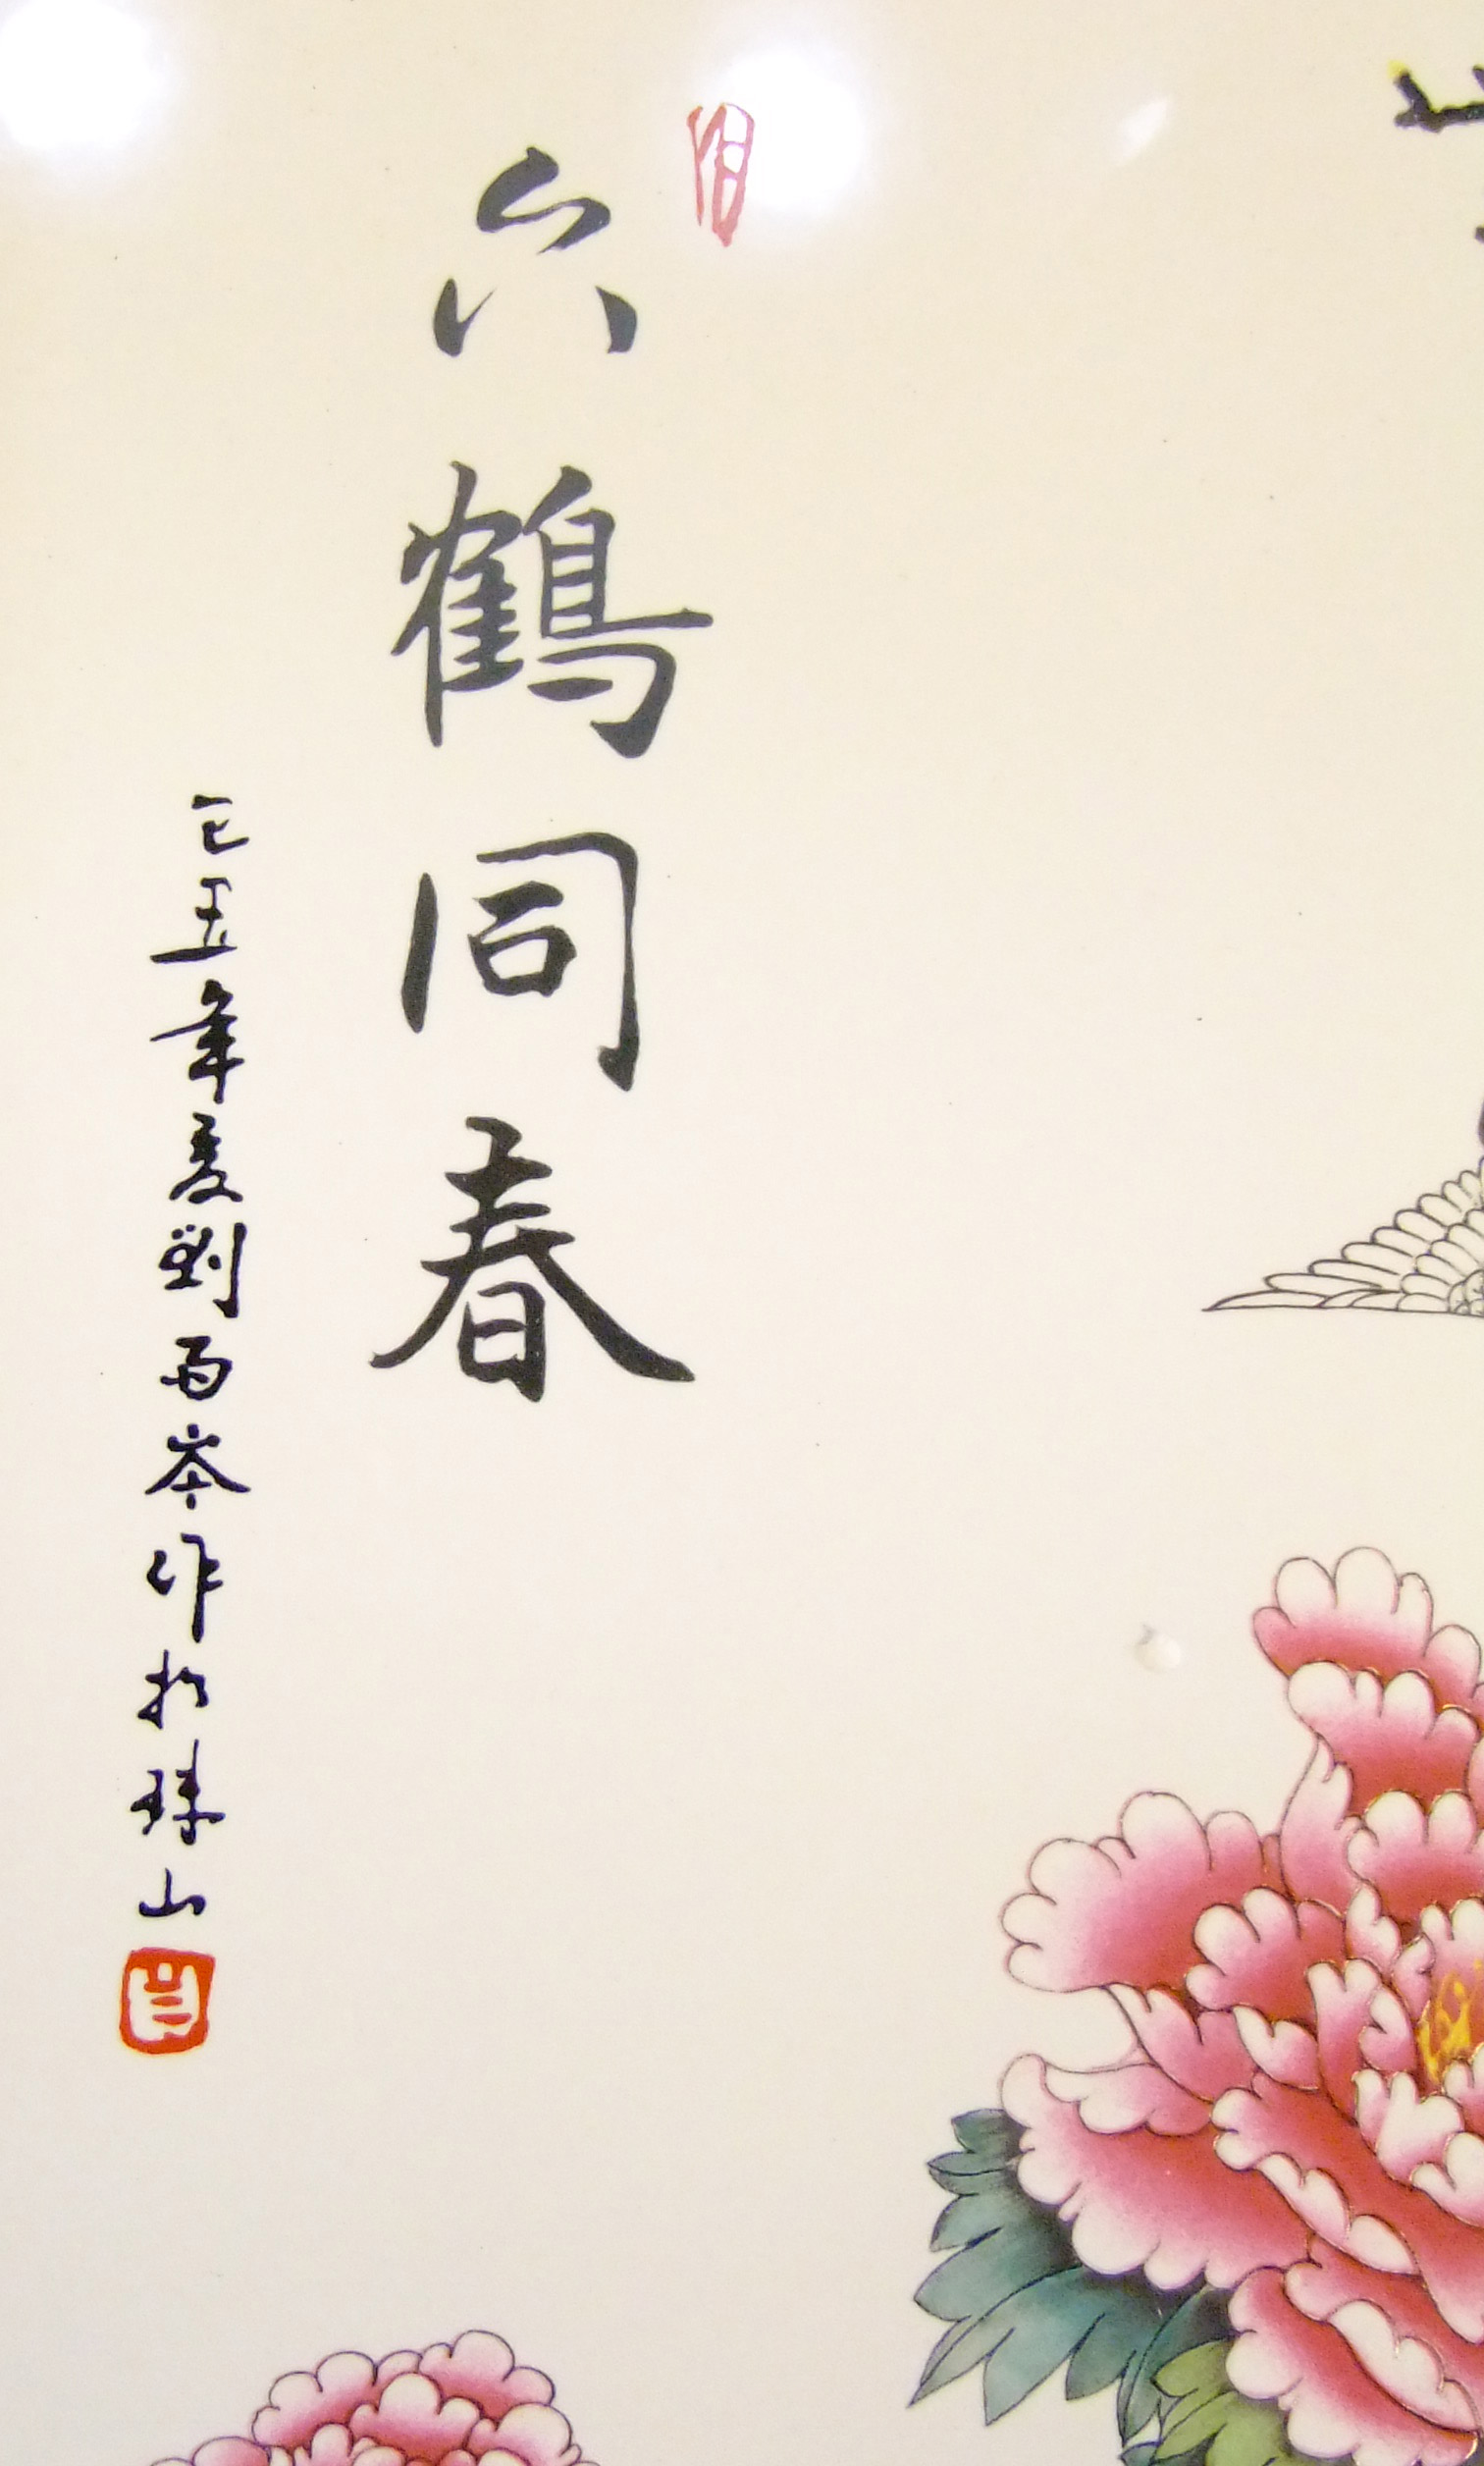 六鶴同春
己丑年夏劉雨岑作於珠山